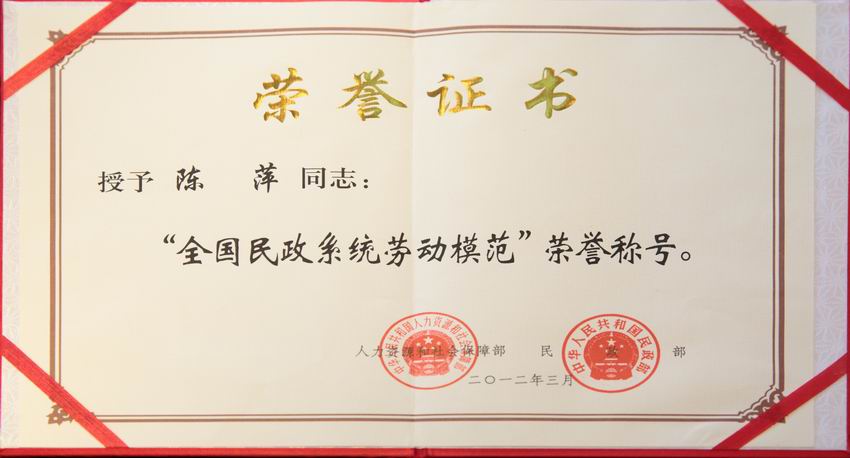 荣誉证书
授予 陈 萍 同志：
“全国民政系统劳动模范”荣誉称号。
人力资源和社会保障部 民政部
二〇一二年三月
中华人民共和国人力资源和社会保障部
中华人民共和国民政部